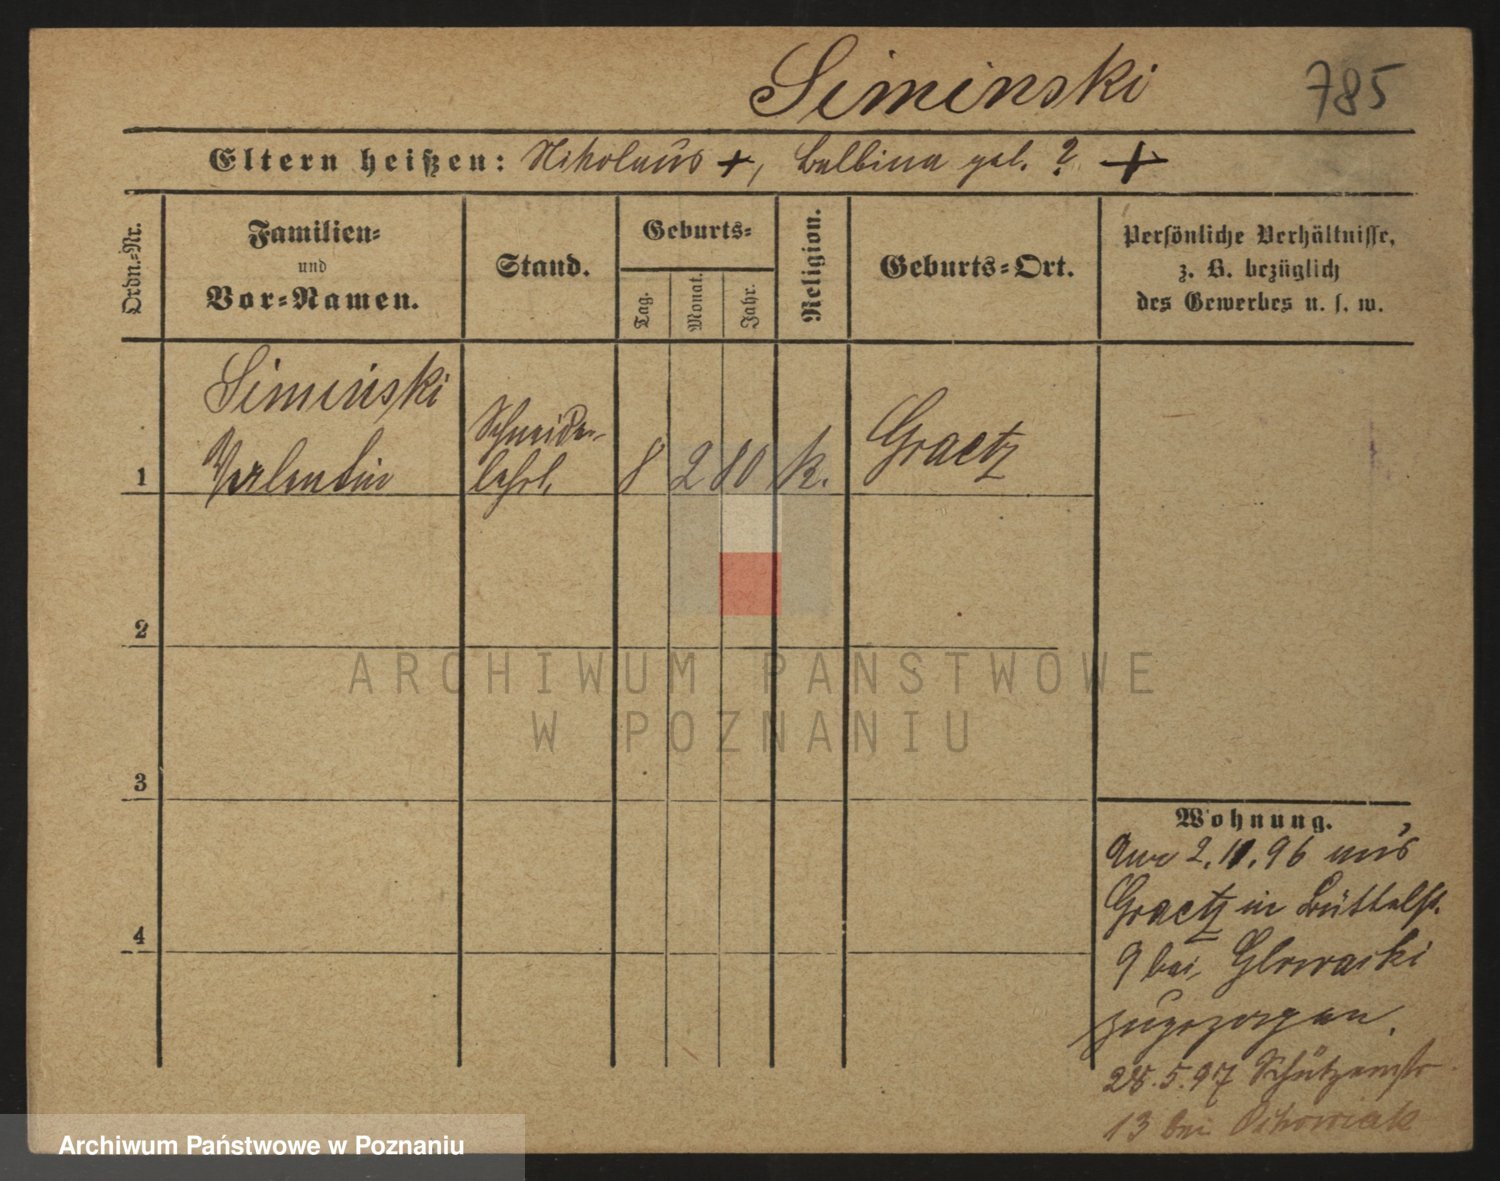 Siminski
785
Eltern heißen: Nikolaus +, Balbina geb. ? +
Ordn.-Nr.
Familien-
und
Vor-Namen.
Stand.
Geburts-
Tag.
Monat.
Jahr.
Religion.
Geburts-Ort.
Persönliche Verhältnisse,
z. B. bezüglich
des Gewerbes u. s. w.
1
Siminski
Valentin
Schneider-
lehrl.
8
2
80
k.
Graetz
2
3
4
Wohnung.
2.11.96 aus
Graetz in Büttelst.
9 bei Glowacki
zugezogen.
28.5.97 Schützenstr
13 bei
ARCHIWUM PAŃSTWOWE
W POZNANIU
Archiwum Państwowe w Poznaniu